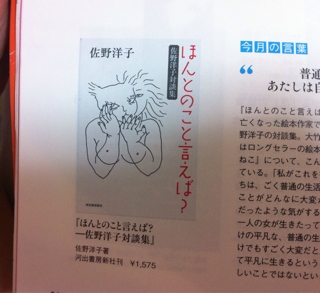 佐野洋子
佐野洋子対談集
ほんとのこと言えば?
『ほんとのこと言えば?
―佐野洋子対談集』
佐野洋子著
河出書房新社刊 ¥1,575
今月の言葉
“
普通
あたしは自
『ほんとのこと言えば
亡くなった絵本作家で
野洋子の対談集。大竹
はロングセラーの絵本
ねこ』について、こん
ている。「私がこれを
ちは、ごく普通の生活
ことがどんなに大変だ
だったような気がする
一人の女が生きたって
けの平凡な、普通の生
けでもすごく大変だと
て平凡に生きるという
しいことではないとい